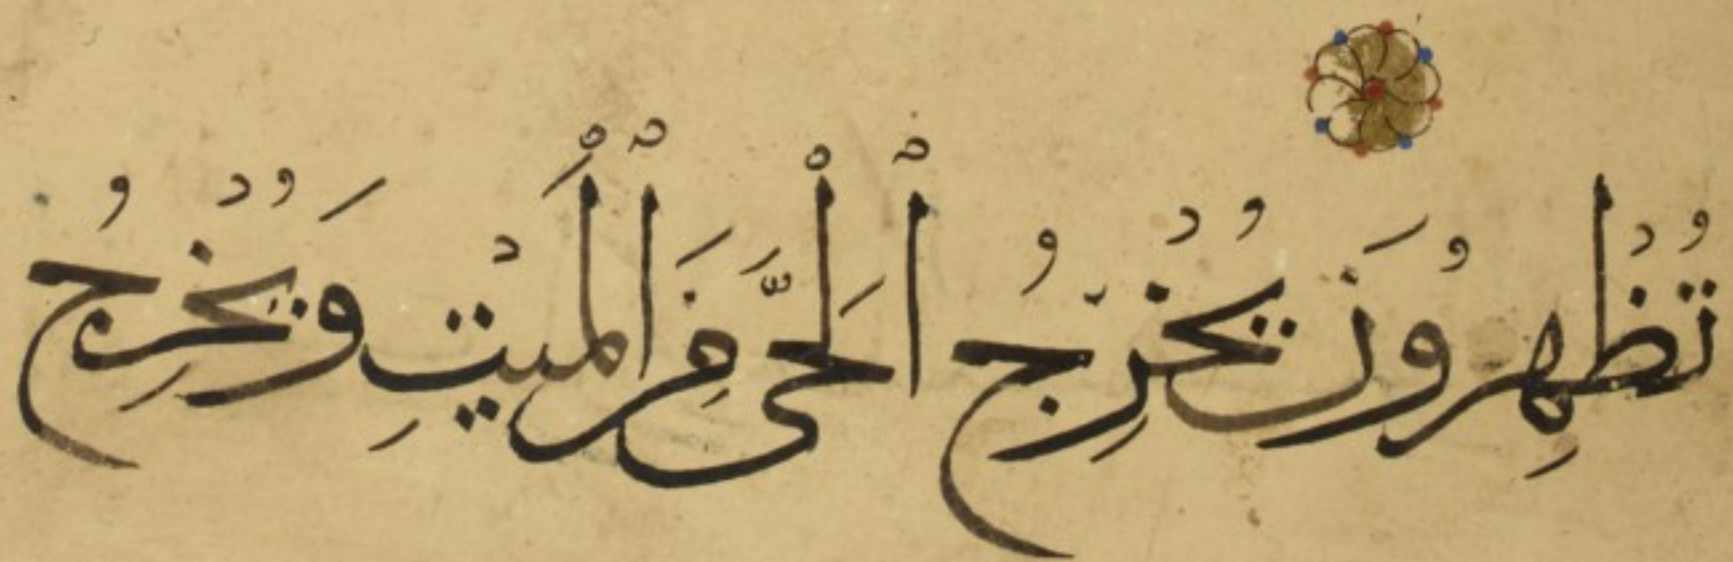 تُظْهِرُونَ يُخْرِجُ ٱلْحَىَّ مِنَ ٱلْمَيْتِ وَيُخْرِجُ